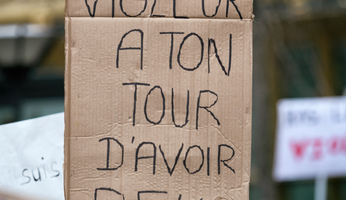 VIOLEUR
A TON
TOUR
D'AVOIR
suis